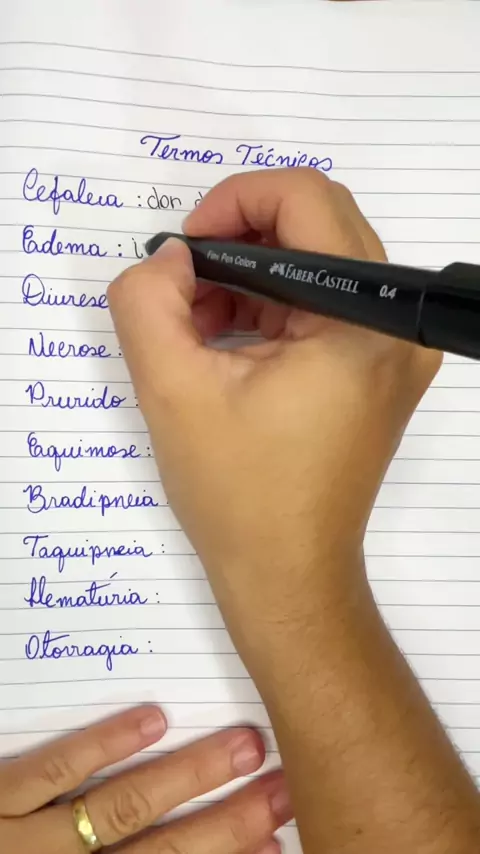 Termos Técnicos
Cefaleia : dor d
Edema : i
Diurese
Necrose :
Prurido :
Equimose :
Bradipneia
Taquipneia :
Hematúria :
Otorragia :
Fine Pen Colors FABER-CASTELL 0.4